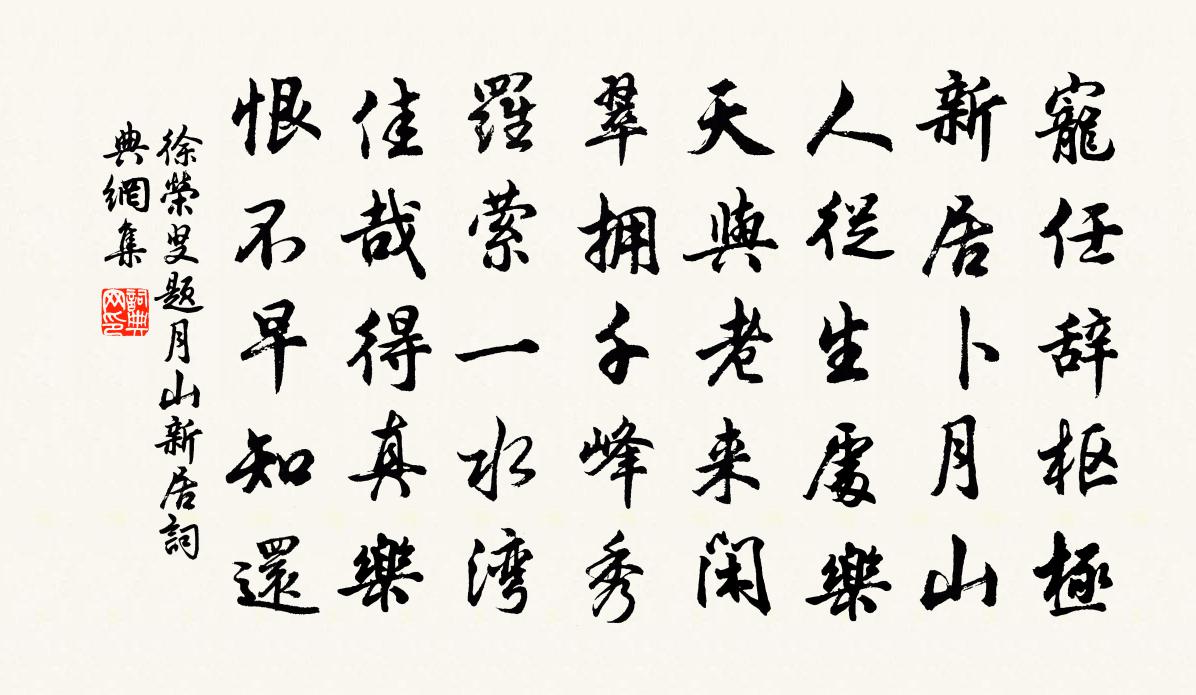 寵任辞枢極
新居卜月山
人從生處樂
天與老来闲
翠拥千峰秀
羅萦一水湾
佳哉得真樂
恨不早知還
徐榮叟題月山新居詞
典網集
詞典網印